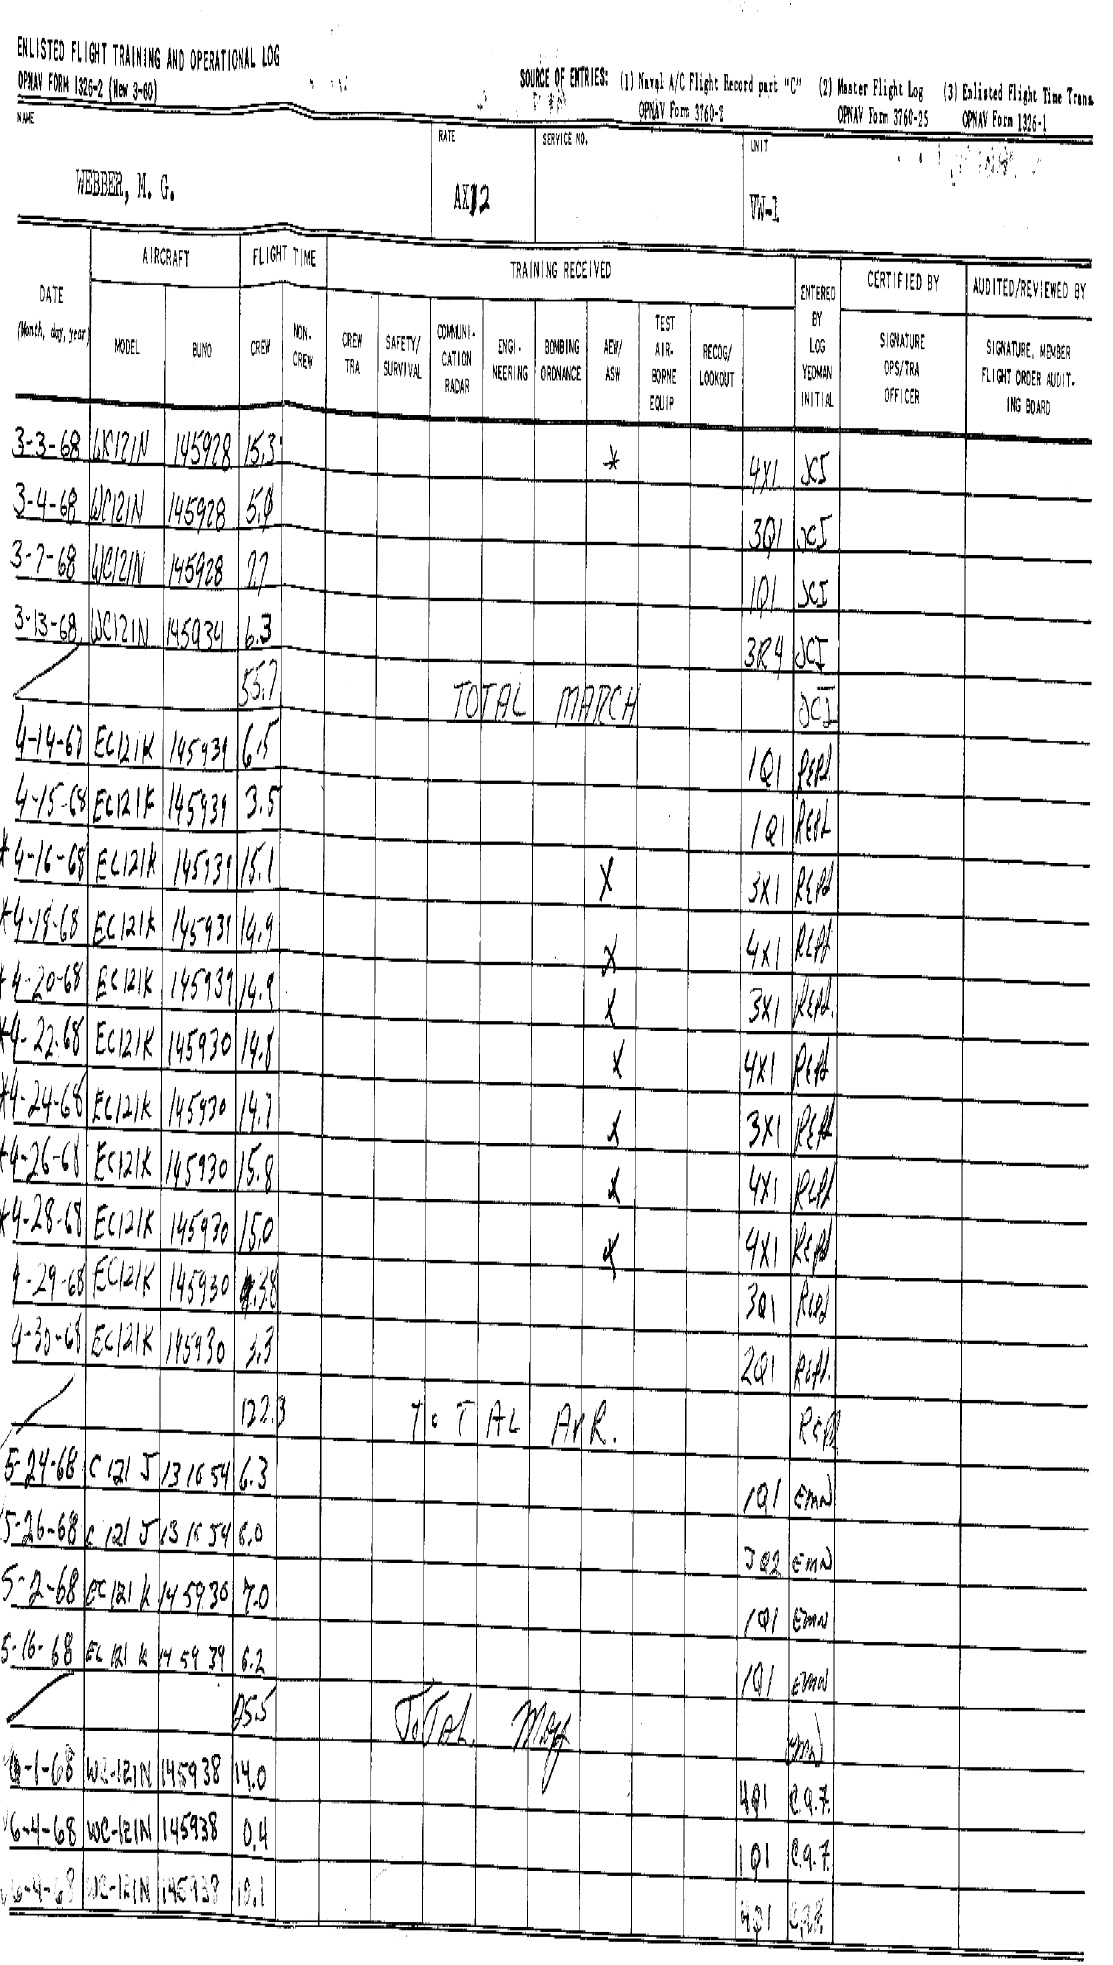 ENLISTED FLIGHT TRAINING AND OPERATIONAL LOG
OPNAV FORM 1326-2 (New 3-60)
SOURCE OF ENTRIES: (1) Naval A/C Flight Record part "C" (2) Master Flight Log (3) Enlisted Flight Time Trans
OPNAV Form 3760-2 OPNAV Form 3760-25 OPNAV Form 1326-1
NAME RATE SERVICE NO. UNIT
WEBBER, M. G. AX12 VW-1
AIRCRAFT FLIGHT TIME TRAINING RECEIVED CERTIFIED BY AUDITED/REVIEWED BY
DATE (Month, day, year) MODEL BUNO CREW NON-CREW CREW TRA SAFETY/SURVIVAL COMMUNI-CATION RADAR ENGI-NEERING BOMBING ORDNANCE AEW/ASW TEST AIR-BORNE EQUIP RECOG/LOOKOUT ENTERED BY LOG YEOMAN INITIAL SIGNATURE OPS/TRA OFFICER SIGNATURE, MEMBER FLIGHT ORDER AUDIT-ING BOARD
3-3-68 WC121N 145928 15.3 * 4X1 JCI
3-4-68 WC121N 145928 5.0 3Q1 JCI
3-7-68 WC121N 145928 1Q1 JCI
3-13-68 WC121N 145934 6.3 3R4 JCI
55.7 TOTAL MARCH JCI
4-14-67 EC121K 145939 6.5 1Q1
4-15-68 EC121K 145939 3.5 1Q1
*4-16-68 EC121K 145939 15.1 X 3X1
*4-19-68 EC121K 145939 14.9 X 4X1
*4-20-68 EC121K 145939 14.9 X 3X1
*4-22-68 EC121K 145930 14.8 X 4X1
*4-24-68 EC121K 145930 14.7 X 3X1
*4-26-68 EC121K 145930 15.8 X 4X1
*4-28-68 EC121K 145930 15.0 X 4X1
4-29-68 EC121K 145930 3.8 3Q1
4-30-68 EC121K 145930 3.3 2Q1
122.3 TOTAL APR.
5-24-68 C 121 J 131654 6.3 1Q1 EMW
5-26-68 C 121 J 131654 6.0 3Q2 EMW
5-2-68 EC121 K 145930 7.0 1Q1 EMW
5-16-68 EC 121 K 145939 6.2 1Q1 EMW
25.5 TOTAL May EMW
6-1-68 WC-121N 145938 14.0 4Q1 C.A.F.
6-4-68 WC-121N 145938 0.4 1Q1 C.A.F.
6-4-68 WC-121N 145938 10.1 4Q1 C.A.F.